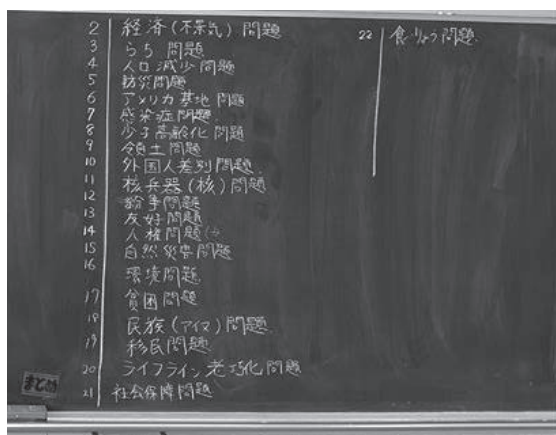 2 経済(不景気)問題
3 らち問題
4 人口減少問題
5 防災問題
6 アメリカ基地問題
7 感染症問題
8 少子高齢化問題
9 領土問題
10 外国人差別問題
11 核兵器(核)問題
12 紛争問題
13 友好問題
14 人権問題
15 自然災害問題
16 環境問題
17 貧困問題
18 民族(アイヌ)問題
19 移民問題
20 ライフライン老巧化問題
21 社会保障問題
まとめ
22 食りょう問題